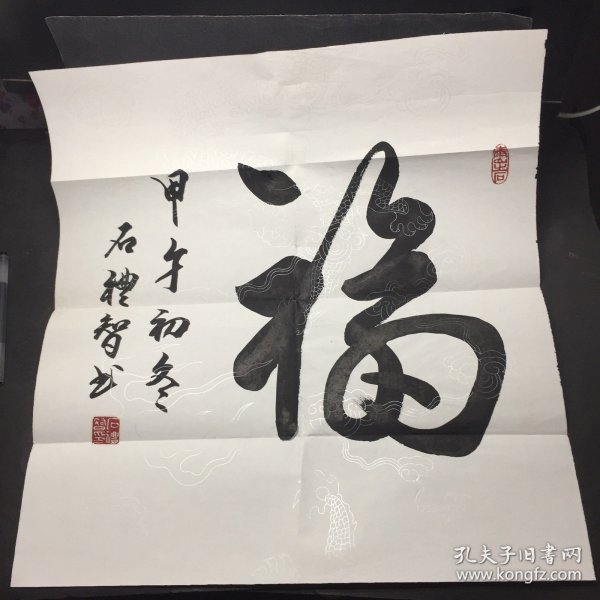 福
甲午初冬
石禮智书
孔夫子旧書网
www.kongfz.com